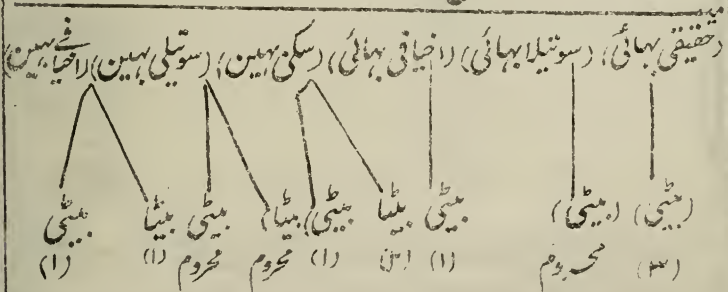 (حقیقی بہائی) (سوتیلا بہائی) (اخیافی بہائی) (سگی بہین) (سوتیلی بہین) (اخیافے بہین)
(بیٹی) (بیٹی) بیٹی بیٹا بیٹی) بیٹا) بیٹی بیٹا بیٹی
(۳) محروم (۱) (۱) محروم محروم (۱) (۱)